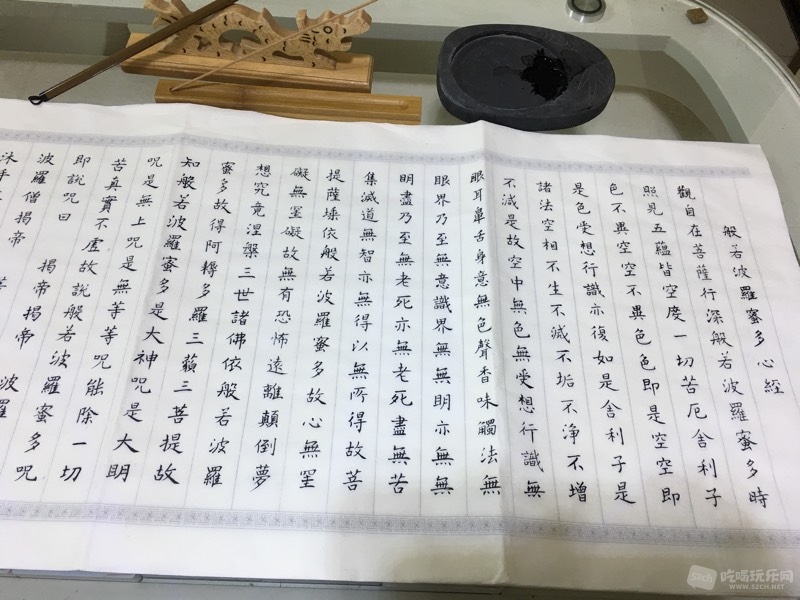 般若波羅蜜多心經
觀自在菩薩行深般若波羅蜜多時
照見五蘊皆空度一切苦厄舍利子
色不異空空不異色色即是空空即
是色受想行識亦復如是舍利子是
諸法空相不生不滅不垢不淨不增
不減是故空中無色無受想行識無
眼耳鼻舌身意無色聲香味觸法無
眼界乃至無意識界無無明亦無無
明盡乃至無老死亦無老死盡無苦
集滅道無智亦無得以無所得故菩
提薩埵依般若波羅蜜多故心無罣
礙無罣礙故無有恐怖遠離顛倒夢
想究竟涅槃三世諸佛依般若波羅
蜜多故得阿耨多羅三藐三菩提故
知般若波羅蜜多是大神咒是大明
咒是無上咒是無等等咒能除一切
苦真實不虛故說般若波羅蜜多咒
即說咒曰 揭帝揭帝 波羅
波羅僧揭帝
沐手
吃喝玩乐网
WWW.SZCH.NET